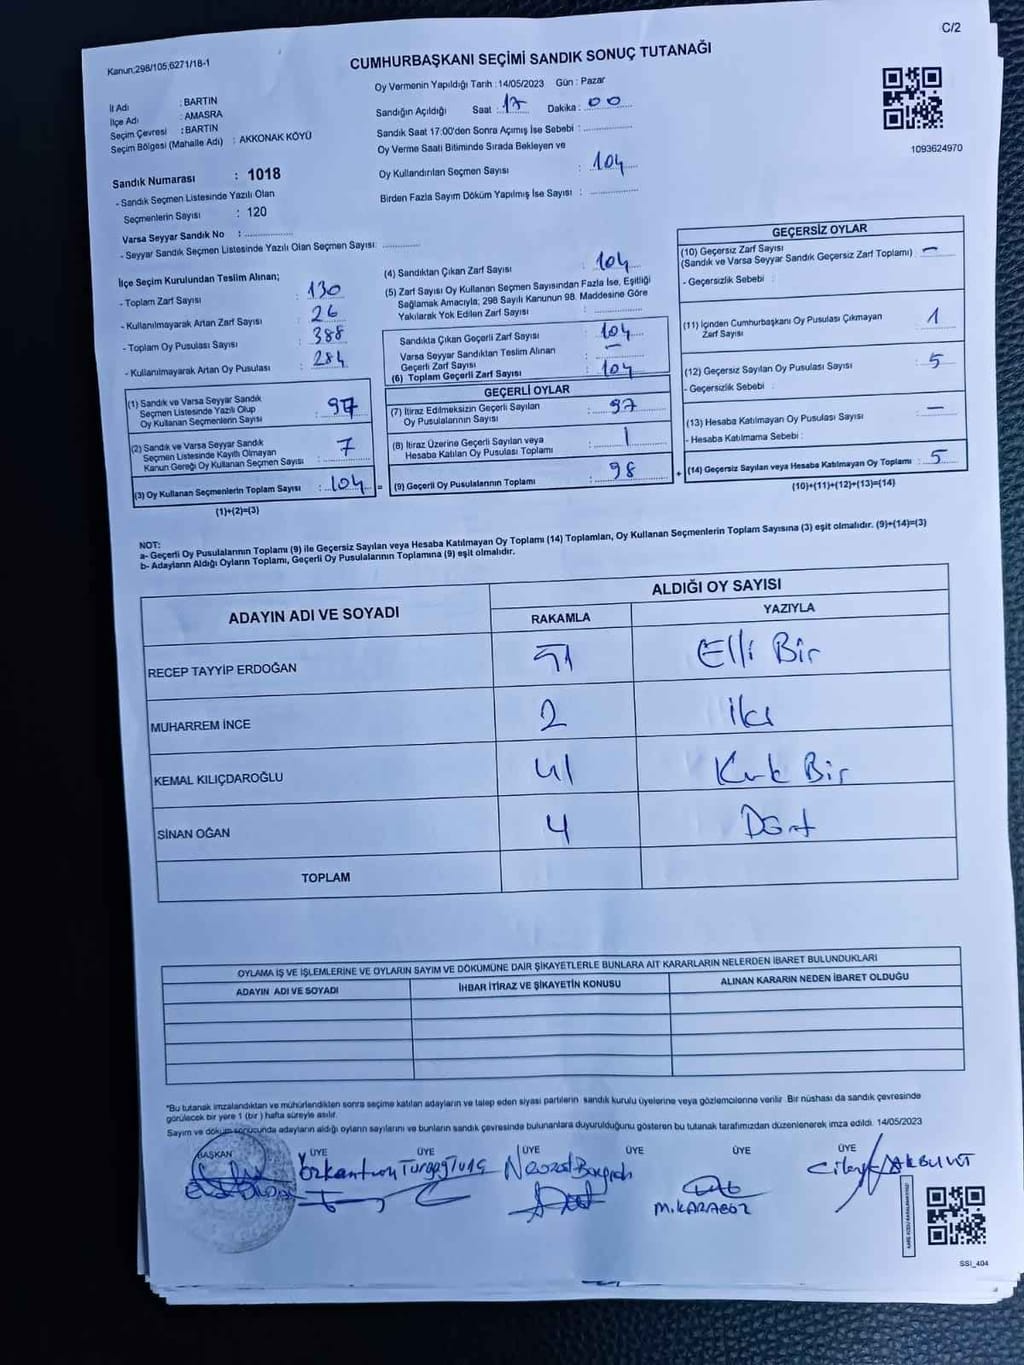 C/2
Kanun;298/105,6271/18-1
CUMHURBAŞKANI SEÇİMİ SANDIK SONUÇ TUTANAĞI
Oy Vermenin Yapıldığı Tarih :14/05/2023 Gün : Pazar
İl Adı : BARTIN
İlçe Adı : AMASRA
Seçim Çevresi : BARTIN
Seçim Bölgesi (Mahalle Adı) : AKKONAK KÖYÜ
Sandığın Açıldığı Saat : 17 Dakika : 00
Sandık Saat 17:00'den Sonra Açımış İse Sebebi :
Oy Verme Saati Bitiminde Sırada Bekleyen ve
Oy Kullandırılan Seçmen Sayısı : 104
Birden Fazla Sayım Döküm Yapılmış İse Sayısı :
1093624970
Sandık Numarası : 1018
- Sandık Seçmen Listesinde Yazılı Olan
Seçmenlerin Sayısı : 120
Varsa Seyyar Sandık No :
- Seyyar Sandık Seçmen Listesinde Yazılı Olan Seçmen Sayısı:
İlçe Seçim Kurulundan Teslim Alınan;
- Toplam Zarf Sayısı : 130
- Kullanılmayarak Artan Zarf Sayısı : 26
- Toplam Oy Pusulası Sayısı : 388
- Kullanılmayarak Artan Oy Pusulası : 284
(1) Sandık ve Varsa Seyyar Sandık
Seçmen Listesinde Yazılı Olup
Oy Kullanan Seçmenlerin Sayısı : 97
(2) Sandık ve Varsa Seyyar Sandık
Seçmen Listesinde Kayıtlı Olmayan
Kanun Gereği Oy Kullanan Seçmen Sayısı : 7
(3) Oy Kullanan Seçmenlerin Toplam Sayısı : 104 =
(1)+(2)=(3)
(4) Sandıktan Çıkan Zarf Sayısı : 104
(5) Zarf Sayısı Oy Kullanan Seçmen Sayısından Fazla İse, Eşitliği
Sağlamak Amacıyla; 298 Sayılı Kanunun 98. Maddesine Göre
Yakılarak Yok Edilen Zarf Sayısı :
Sandıkta Çıkan Geçerli Zarf Sayısı : 104
Varsa Seyyar Sandıktan Teslim Alınan
Geçerli Zarf Sayısı : —
(6) Toplam Geçerli Zarf Sayısı : 104
GEÇERLİ OYLAR
(7) İtiraz Edilmeksizin Geçerli Sayılan
Oy Pusulalarının Sayısı : 97
(8) İtiraz Üzerine Geçerli Sayılan veya
Hesaba Katılan Oy Pusulası Toplamı : 1
(9) Geçerli Oy Pusulalarının Toplamı : 98 +
GEÇERSİZ OYLAR
(10) Geçersiz Zarf Sayısı
(Sandık ve Varsa Seyyar Sandık Geçersiz Zarf Toplamı) : —
- Geçersizlik Sebebi :
(11) İçinden Cumhurbaşkanı Oy Pusulası Çıkmayan
Zarf Sayısı : 1
(12) Geçersiz Sayılan Oy Pusulası Sayısı : 5
- Geçersizlik Sebebi :
(13) Hesaba Katılmayan Oy Pusulası Sayısı : —
- Hesaba Katılmama Sebebi :
(14) Geçersiz Sayılan veya Hesaba Katılmayan Oy Toplamı : 5
(10)+(11)+(12)+(13)=(14)
NOT:
a- Geçerli Oy Pusulalarının Toplamı (9) ile Geçersiz Sayılan veya Hesaba Katılmayan Oy Toplamı (14) Toplamları, Oy Kullanan Seçmenlerin Toplam Sayısına (3) eşit olmalıdır. (9)+(14)=(3)
b- Adayların Aldığı Oyların Toplamı, Geçerli Oy Pusulalarının Toplamına (9) eşit olmalıdır.
ADAYIN ADI VE SOYADI
ALDIĞI OY SAYISI
RAKAMLA YAZIYLA
RECEP TAYYİP ERDOĞAN 51 Elli Bir
MUHARREM İNCE 2 iki
KEMAL KILIÇDAROĞLU 41 Kırk Bir
SİNAN OĞAN 4 Dört
TOPLAM
OYLAMA İŞ VE İŞLEMLERİNE VE OYLARIN SAYIM VE DÖKÜMÜNE DAİR ŞİKAYETLERLE BUNLARA AİT KARARLARIN NELERDEN İBARET BULUNDUKLARI
ADAYIN ADI VE SOYADI
İHBAR İTİRAZ VE ŞİKAYETİN KONUSU
ALINAN KARARIN NEDEN İBARET OLDUĞU
*Bu tutanak imzalandıktan ve mühürlendikten sonra seçime katılan adayların ve talep eden siyasi partilerin sandık kurulu üyelerine veya gözlemcilerine verilir. Bir nüshası da sandık çevresinde
görülecek bir yere 1 (bir ) hafta süreyle asılır.
Sayım ve döküm sonucunda adayların aldığı oyların sayılarını ve bunların sandık çevresinde bulunanlara duyurulduğunu gösteren bu tutanak tarafımızdan düzenlenerek imza edildi. 14/05/2023
BAŞKAN ÜYE ÜYE ÜYE ÜYE ÜYE ÜYE
Turgay Tunç
M.KARAGÖZ
SSİ_404